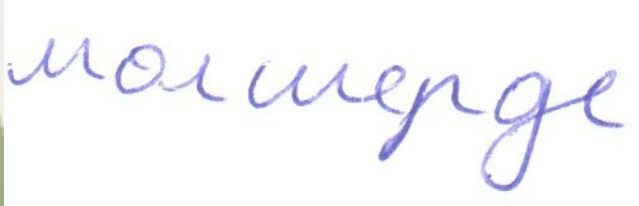 молшерде